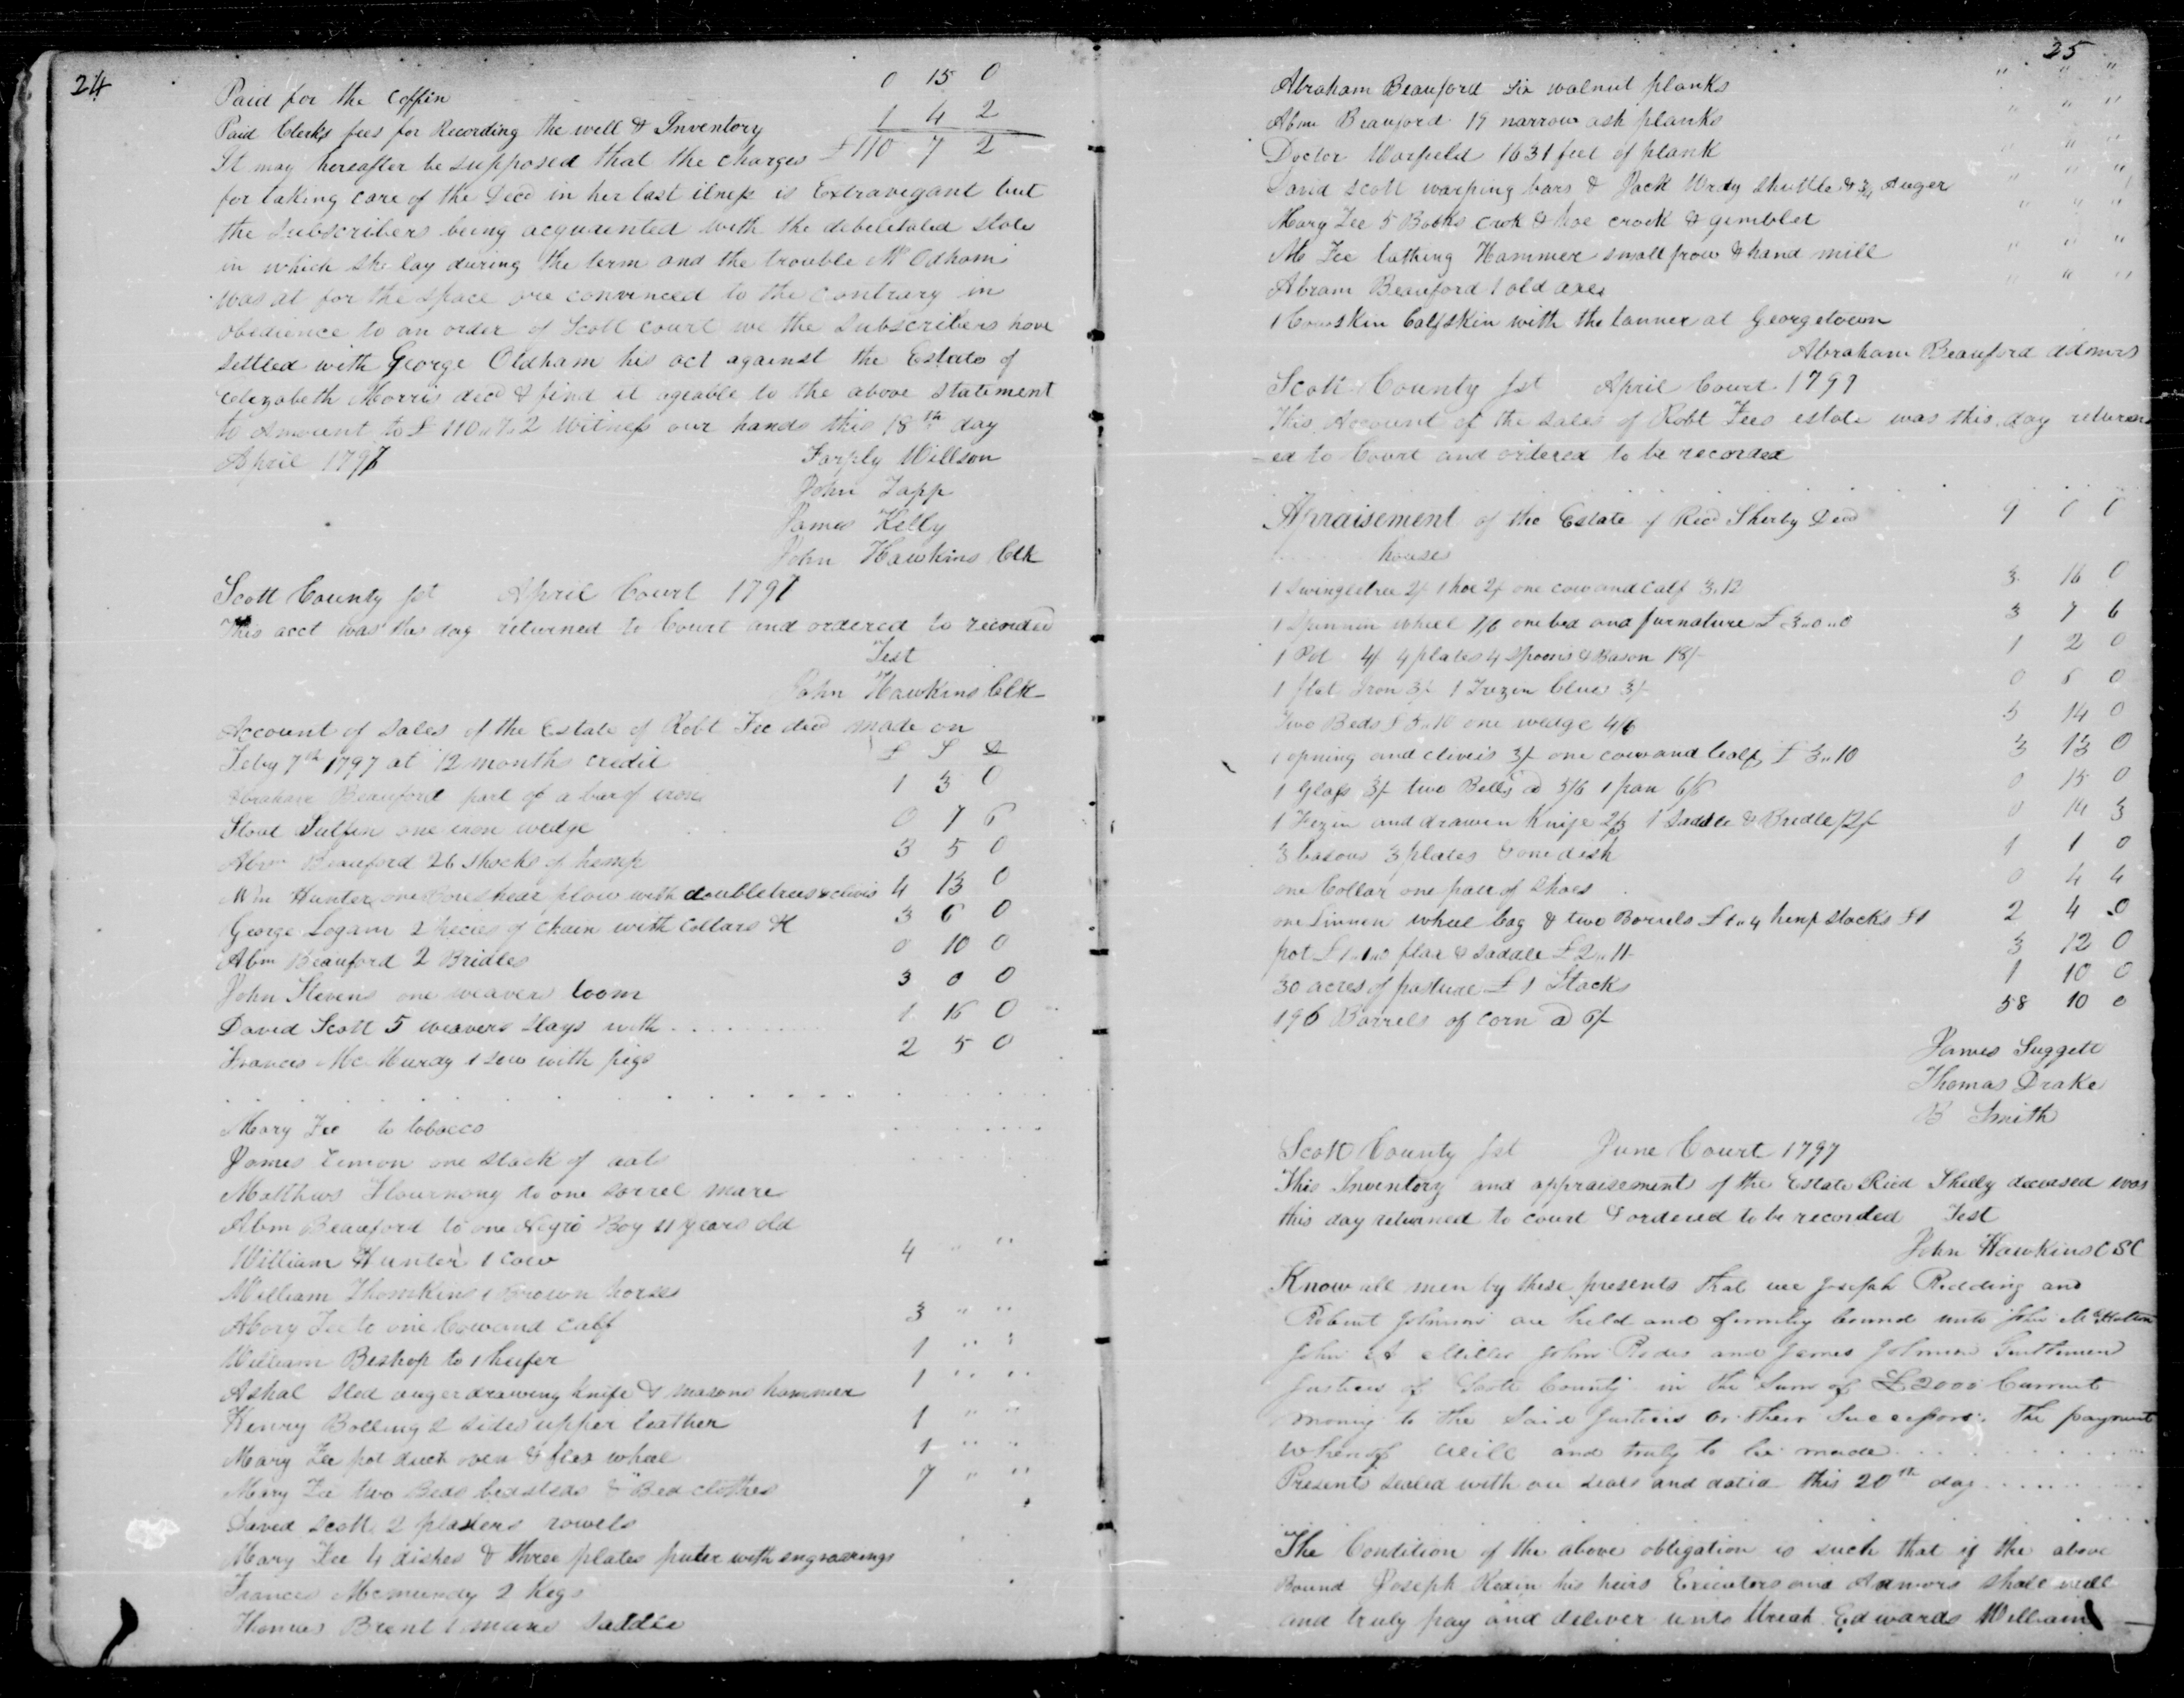 24
Paid for the Coffin 0 15 0
Paid Clerks fees for Recording the will & Inventory 1 4 2
It may hereafter be supposed that the charges £110 7 2
for taking care of the Decd in her last ilness is Extravegant but
the Subscribers being acquainted with the debelitated state
in which she lay during the term and the trouble Mr Odham
was at for the space are convinced to the contrary in
obedience to an order of Scott court we the Subscribers have
settled with George Oldham his act against the Estate of
Elizabeth Morris decd & find it ageable to the above statement
to Amount to £ 110,,7,,2 Witness our hands this 18th day
April 1797
Willson
John Tapp
James Kelly
John Hawkins Clk
Scott County Sct April Court 1797
This acct was this day returned to Court and ordered to recorded
Test
John Hawkins Clk
Account of Sales of the Estate of Robt Fee decd made on
Feby 7th 1797 at 12 months credit £ S D
Abraham Beauford part of a bar of iron 1 3 0
one iron wedge 0 7 6
Abrm Beauford 26 Shocks of hemp 3 5 0
Wm Hunter one plow with doubletrees & clivis 4 13 0
George Logam 2 pecies of chain with Collars & 3 6 0
Abm Beauford 2 Bridles 0 10 0
John Stevens one weavers loom 3 0 0
David Scott 5 weavers slays with . . . . . . 1 16 0
Frances Mc Murdy 1 sow with pigs 2 5 0
Mary Fee to tobacco
James Lemon one stack of oats
Matthews Flournony to one sorrel mare
Abm Beauford to one Negro Boy 11 years old
William Hunter 1 cow 4 " "
William Thomkins 1 Brown horse
Mary Fee to one Cow and calf 3 " "
William Bishop to 1 heifer 1 " "
Ashal Sled auger drawing knife & masons hammer 1 " "
Henry Bolling 2 sides upper leather 1 " "
Mary Fee pot duch oven & flax wheel 1 " "
Mary Fee two Beds bedsteds & Bed clothes 7 " "
David Scott 2 plasters rowels
Mary Fee 4 dishes & three plates puter with engravings
Frances Mcmurdy 2 Kegs
Thomas Brent 1 mans saddle
25
Abraham Beauford six walnut planks " " "
Abm Beauford 19 narrow ash planks " " "
Doctor Warfield 1631 feet of plank " " "
David Scott warping bars & Jack shuttle & 3/4 Auger " " "
Mary Fee 5 Books & hoe crook & gimblet " " "
Mo Fee lathing Hammer small frow & hand mill " " "
Abram Beauford 1 old axe " " "
1 Cowskin Calfskin with the tanner at Georgetown
Abraham Beauford Admrs
Scott County Sct April Court 1797
This Account of the sales of Robt Fees estate was this day return
-ed to Court and ordered to be recorded
Apraisement of the Estate of Ricd Shelby Decd 9 0 0
house
1 Swingletree 2/ 1 hoe 2/ one cow and calf 3,,12 3 16 0
1 Spinnin wheel 7/6 one bed and furnature £ 3,,0,,0 3 7 6
1 Pot 4/ 4 plates 4 spoons & Bason 18/- 1 2 0
1 flat Iron 3/- 1 3/-
Two Beds one wedge 4/6 5 14 0
1 opning and clivis 3/- one cow and Calf £ 3,,10 3 13 0
1 Glass 3/- two Bells @ 5/6 1 pan 6/6 0 15 0
1 and drawen Knife 2/3 1 Saddle & Bredle 12/- 0 14 3
3 basons 3 plates & one dish 1 1 0
one Collar one pair of Shoes 0 4 4
one Linnen wheel & two Barrels £ 1,,4 hemp stacks £1 2 4 0
pot £ 1,,1,,0 flax & saddle £ 2,,11 3 12 0
30 acres of pasture £ 1 Stacks 1 10 0
195 Barrels of corn @ 6/- 58 10 0
James Suggett
Thomas Drake
B Smith
Scott County Sct June Court 1797
This Inventory and appraisement of the Estate Ricd Shelby deceased was
this day returned to court & ordered to be recorded Test
John Hawkins C S C
Know all men by these presents that we Joseph Redding and
Robert Johnson are held and firmly bound unto John McHatton
John A Miller John Rodes and James Johnson Gentlemen
Justices of Scott County in the Sum of £2000 Currnt
money to the said Justices or their Successors the payment
whereof will and truly to be made . . . . . .
Presents sealed with our seals and dated this 20th day . . . . . .
The Condition of the above obligation is such that if the above
Bound Joseph his heirs Executors and Admors shall well
and truly pay and deliver unto Uriah Edwards William